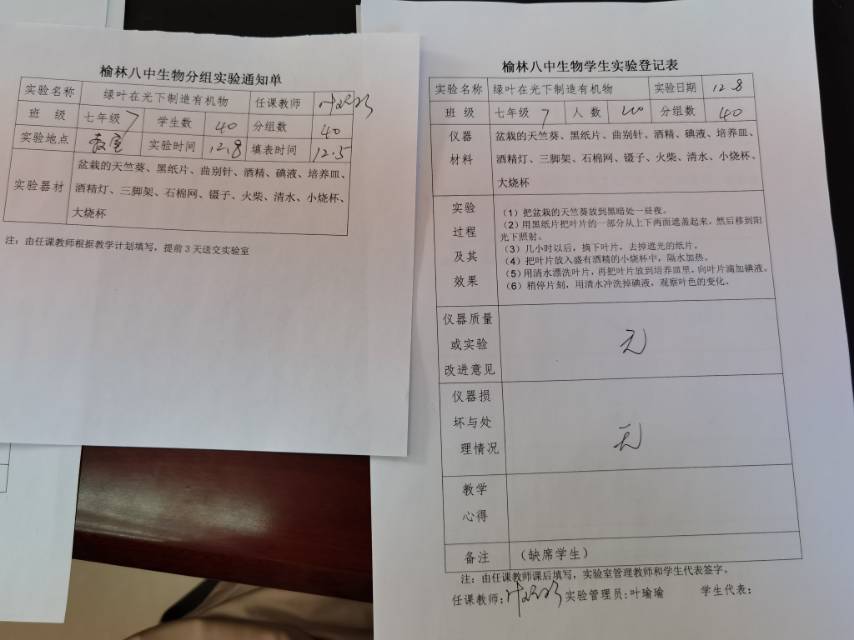 榆林八中生物分组实验通知单
实验名称 绿叶在光下制造有机物 任课教师
班 级 七年级 7 学生数 40 分组数 40
实验地点 教室 实验时间 12.8 填表时间 12.5
实验器材 盆栽的天竺葵、黑纸片、曲别针、酒精、碘液、培养皿、
酒精灯、三脚架、石棉网、镊子、火柴、清水、小烧杯、
大烧杯
注：由任课教师根据教学计划填写，提前 3 天送交实验室
榆林八中生物学生实验登记表
实验名称 绿叶在光下制造有机物 实验日期 12.8
班 级 七年级 7 人 数 40 分组数 40
仪器
材料
盆栽的天竺葵、黑纸片、曲别针、酒精、碘液、培养皿、
酒精灯、三脚架、石棉网、镊子、火柴、清水、小烧杯、
大烧杯
实验
过程
及其
效果
（1）把盆栽的天竺葵放到黑暗处一昼夜。
（2）用黑纸片把叶片的一部分从上下两面遮盖起来，然后移到阳
光下照射。
（3）几小时以后，摘下叶片，去掉遮光的纸片。
（4）把叶片放入盛有酒精的小烧杯中，隔水加热。
（5）用清水漂洗叶片，再把叶片放到培养皿里，向叶片滴加碘液。
（6）稍停片刻，用清水冲洗掉碘液，观察叶色的变化。
仪器质量
或实验
改进意见
无
仪器损
坏与处
理情况
无
教学
心得
备注 （缺席学生）
注：由任课教师课后填写，实验室管理教师和学生代表签字。
任课教师： 实验管理员:叶瑜瑜 学生代表：